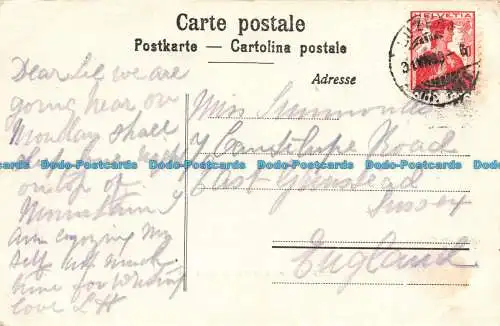 Carte postale
Postkarte — Cartolina postale
Adresse
HELVETIA
Dear we are
going hear on
Monday shall
on top of
Mountain I
am enjoying my
self not much
time for writing
love L H
Miss Simmonds
Cantelupe Road
East Grinstead
Sussex
England
Dodo-Postcards Dodo-Postcards Dodo-Postcards Dodo-Postcards Dodo-Postcards